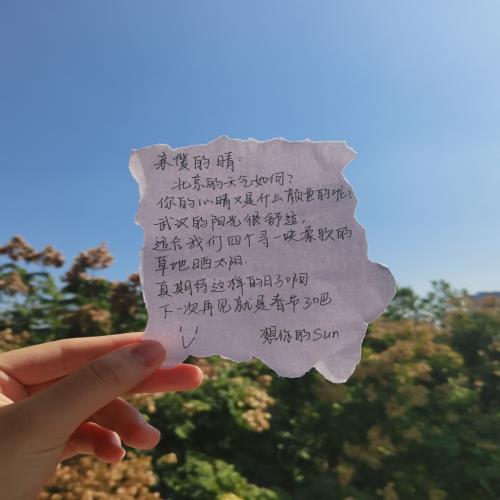 亲爱的晴:
北京的天气如何?
你的心晴又是什么颜色的呢?
武汉的阳光很舒适,
适合我们四个寻一块柔软的
草地晒太阳.
真期待这样的日子啊
下一次再见就是春节了吧
想你的Sun